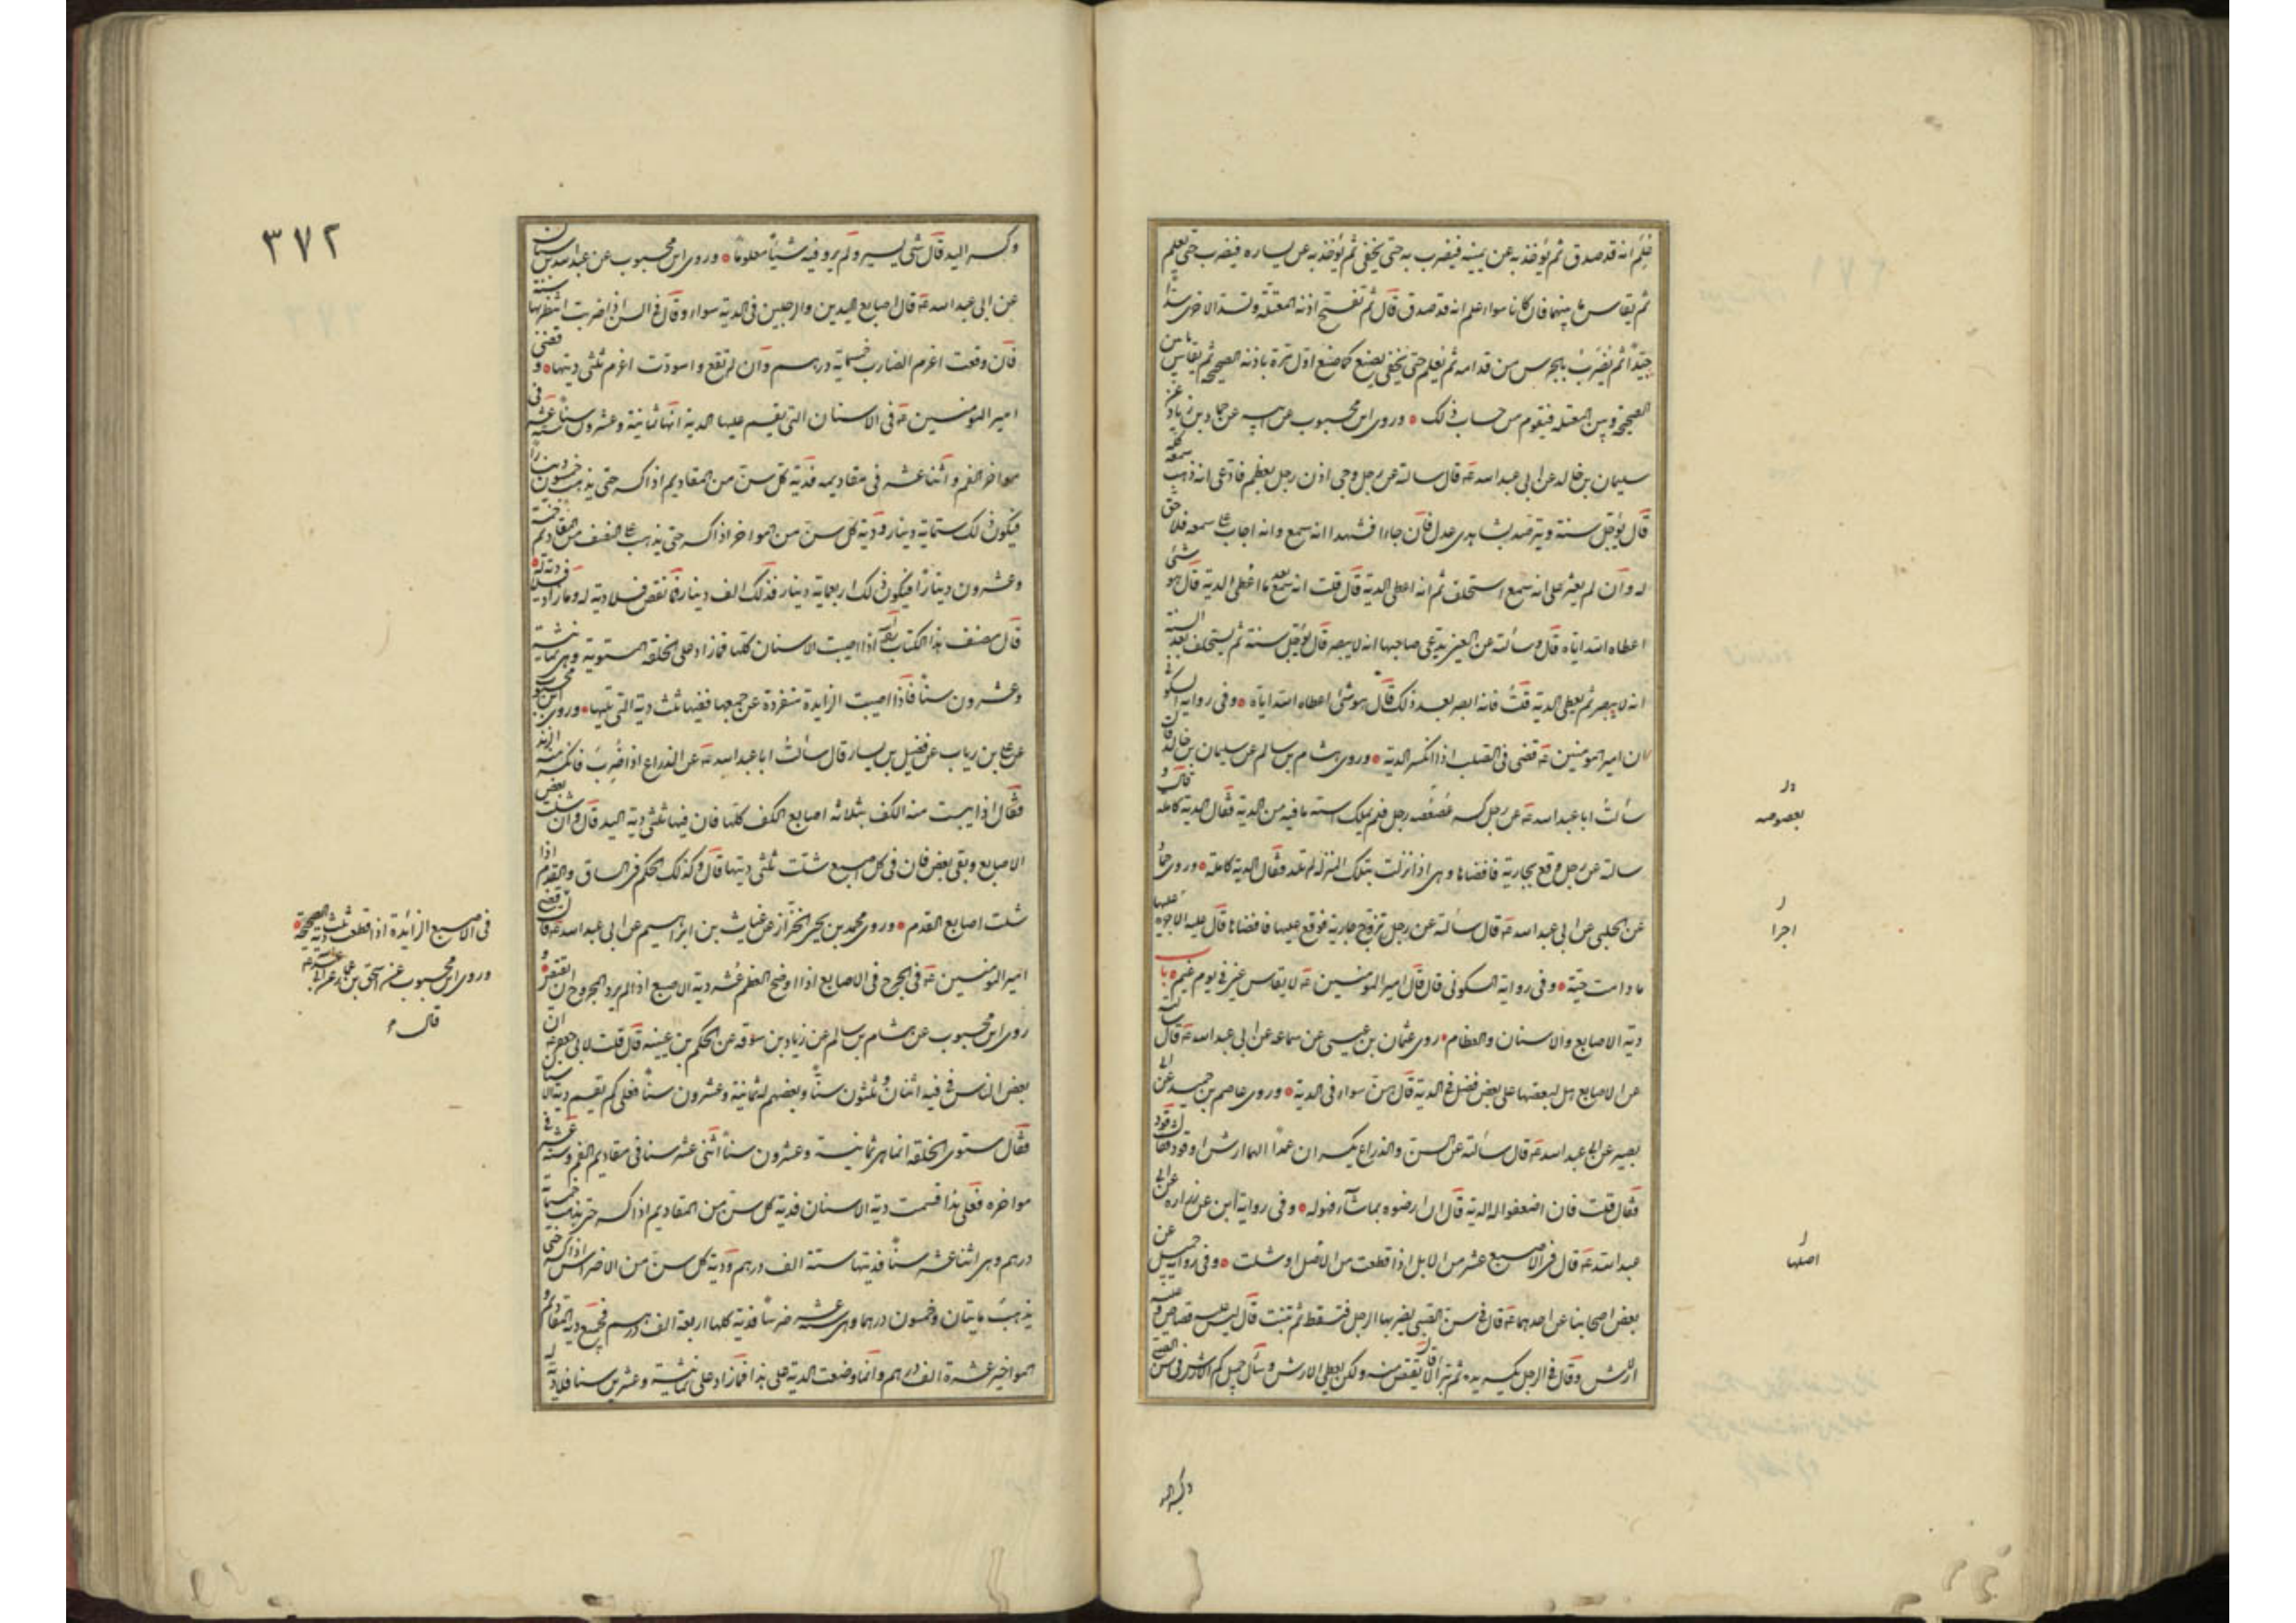 فعلم انه قد صدق ثم يؤخذ به عن يمينه فيضرب به حتى يخفى ثم يؤخذ به عن يساره فيضرب حتى يعلم
ثم يقاس ما بينهما فان كانا سواء علم انه قد صدق قال ثم تفتح اذنه المعتلة وتسد الاخرى سدا
جيدا ثم يضرب بالجرس من قدامه ثم يعلم حتى يخفى يصنع كما صنع اول مرة باذنه الصحيحة ثم يقاس ما بين
الصحيحة وبين المعتلة فيقوم من حساب ذلك وروى ابن محبوب عن ابيه عن حماد بن زياد عن
سليمان بن خالد عن ابى عبد الله ع قال سالته عن رجل وجى اذن رجل بعظم فادعى انه ذهب سمعه كله
قال يؤجل سنة ويترصد بشاهدى عدل فان جاءا فشهدا انه سمع وانه اجاب على سمعه فلا حق
له وان لم يعثر على انه سمع استحلف ثم انه اعطى الدية قال قلت انه سمع بعد ما اعطى الدية قال هو شئ
اعطاه الله اياه قال وسألته عن العين يدعى صاحبها انه لا يبصر قال يؤجل سنة ثم يستحلف بعد السنة
انه لا يبصر ثم يعطى الدية قلت فانه ابصر بعد ذلك قال هو شئ اعطاه الله اياه وفى رواية السكونى
ان امير المومنين ع قضى فى الصلب اذا انكسر الدية وروى هشام بن سالم عن سليمان بن خالد قال
سألت ابا عبد الله ع عن رجل كسر عصعصه رجل فلم يملك استه ما فيه من الدية فقال الدية كاملة قال و
سالته عن رجل وقع بجارية فافضاها وهى اذا نزلت بتلك المنزلة لم تلد فقال الدية كاملة وروى حماد
عن الحلبى عن ابى عبد الله ع قال سألته عن رجل تزوج جارية فوقع عليها فافضاها قال عليه الاجراء عليها
ما دامت حية وفى رواية السكونى قال قال امير المؤمنين ع لا يقاس عين فى يوم غيم باب
دية الاصابع والاسنان والعظام روى عثمان بن عيسى عن سماعة عن ابى عبد الله ع قال سالته
عن الاصابع هل لبعضها على بعض فضل فى الدية قال هن سواء فى الدية وروى عاصم بن حميد عن ابى
بصير عن ابى عبد الله ع قال سألته عن السن والذراع يكسران عمدا الهما ارش او قود فقال قود
فقال قلت فان اضعفوا له الدية قال ان ارضوه بما شاء فهو له وفى رواية ابن عن زرارة عن ابى
عبد الله ع قال فى الاصبع عشر من الابل اذا قطعت من الاصل او شلت وفى رواية جميل عن
بعض اصحابنا عن احدهما ع قال فى سن الصبى يضربها الرجل فتسقط ثم تنبت قال ليس عليه قصاص و عليه
الارش وقال فى الرجل يكسر يده ثم تبرأ قال لا يقتص منه ولكن يعطى الارش وسأل جميل كم الارش فى سن الصبى
ول
بعصوصه
ل
اجرا
ل
اصلها
وكسر اليد
٣٧٢
وكسر اليد قال شئ يسير ولم يرو فيه شيئا معلوما وروى ابن محبوب عن عبد الله بن سنان
عن ابى عبد الله ع قال اصابع اليدين والرجلين فى الدية سواء وقال فى السن اذا ضربت انتظر بها سنة
فان وقعت اغرم الضارب خمسماية درهم وان لم تقع واسودت اغرم ثلثى ديتها و قضى
امير المؤمنين ع فى الاسنان التى يقسم عليها الدية انها ثمانية وعشرون سنا ستة عشر فى
مواخر الفم و اثنا عشر فى مقاديمه فدية كل سن من المقاديم اذا كسر حتى يذهب خمسون دينارا
فيكون ذلك ستماية دينار ودية كل سن من المواخر اذا كسر حتى يذهب على النصف من المقاديم خمسة
وعشرون دينارا فيكون ذلك اربعماية دينار فذلك الف دينار فما نقص فلا دية له وما زاد فلا دية له
قال مصنف هذا الكتاب اذا اصيبت الاسنان كلها فما زاد على الخلقة المستوية وهى ثمانية
وعشرون سنا فاذا اصيبت الزايدة منفردة عن جميعها ففيها ثلث دية التى تليها وروى ابن محبوب
عن على بن رياب عن فضيل بن يسار قال سألت ابا عبد الله ع عن الذراع اذا ضرب فانكسر منه الزند
فقال اذا يبست منه الكف بثلاثة اصابع الكف كلها فان فيها ثلثى دية اليد قال وان شلت بعض
الاصابع وبقى بعض فان فى كل اصبع شلت ثلثى ديتها قال وكذلك الحكم فى الساق والقدم اذا
شلت اصابع القدم وروى محمد بن يحيى الخزاز عن غياث بن ابراهيم عن ابى عبد الله ع قال قضى
امير المؤمنين ع فى الجرح فى الاصابع اذا اوضح العظم عشر دية الاصبع اذا لم يرد المجروح ان يقتص و
روى ابن محبوب عن هشام بن سالم عن زياد بن سوقة عن الحكم بن عيينه قال قلت لابى جعفر ع ان
بعض الناس فى فيه اثنان و ثلثون سنا وبعضهم ثمانية وعشرون سنا فعلى كم تقسم دية الاسنان
فقال مستوى الخلقة انما هى ثمانية وعشرون سنا اثنى عشر سنا فى مقاديم الفم وستة عشر فى
مواخره فعلى هذا قسمت دية الاسنان فدية كل سن من المقاديم اذا كسر حتى يذهب خمسماية
درهم وهى اثنا عشر سنا فديتها ستة الف درهم ودية كل سن من الاضراس اذا كسر حتى
يذهب مايتان وخمسون درهما وهى ستة عشر ضرسا فدية كلها اربعة الف درهم فجميع دية المقاديم و
المواخير عشرة الف درهم وانما وضعت الدية على هذا فما زاد على ثمانية وعشرين سنا فلا دية له
فى الاصبع الزائدة اذا قطعت ثلث دية الصحيحة
وروى ابن محبوب عن اسحق بن عمار عن ابى عبد الله ع
قال